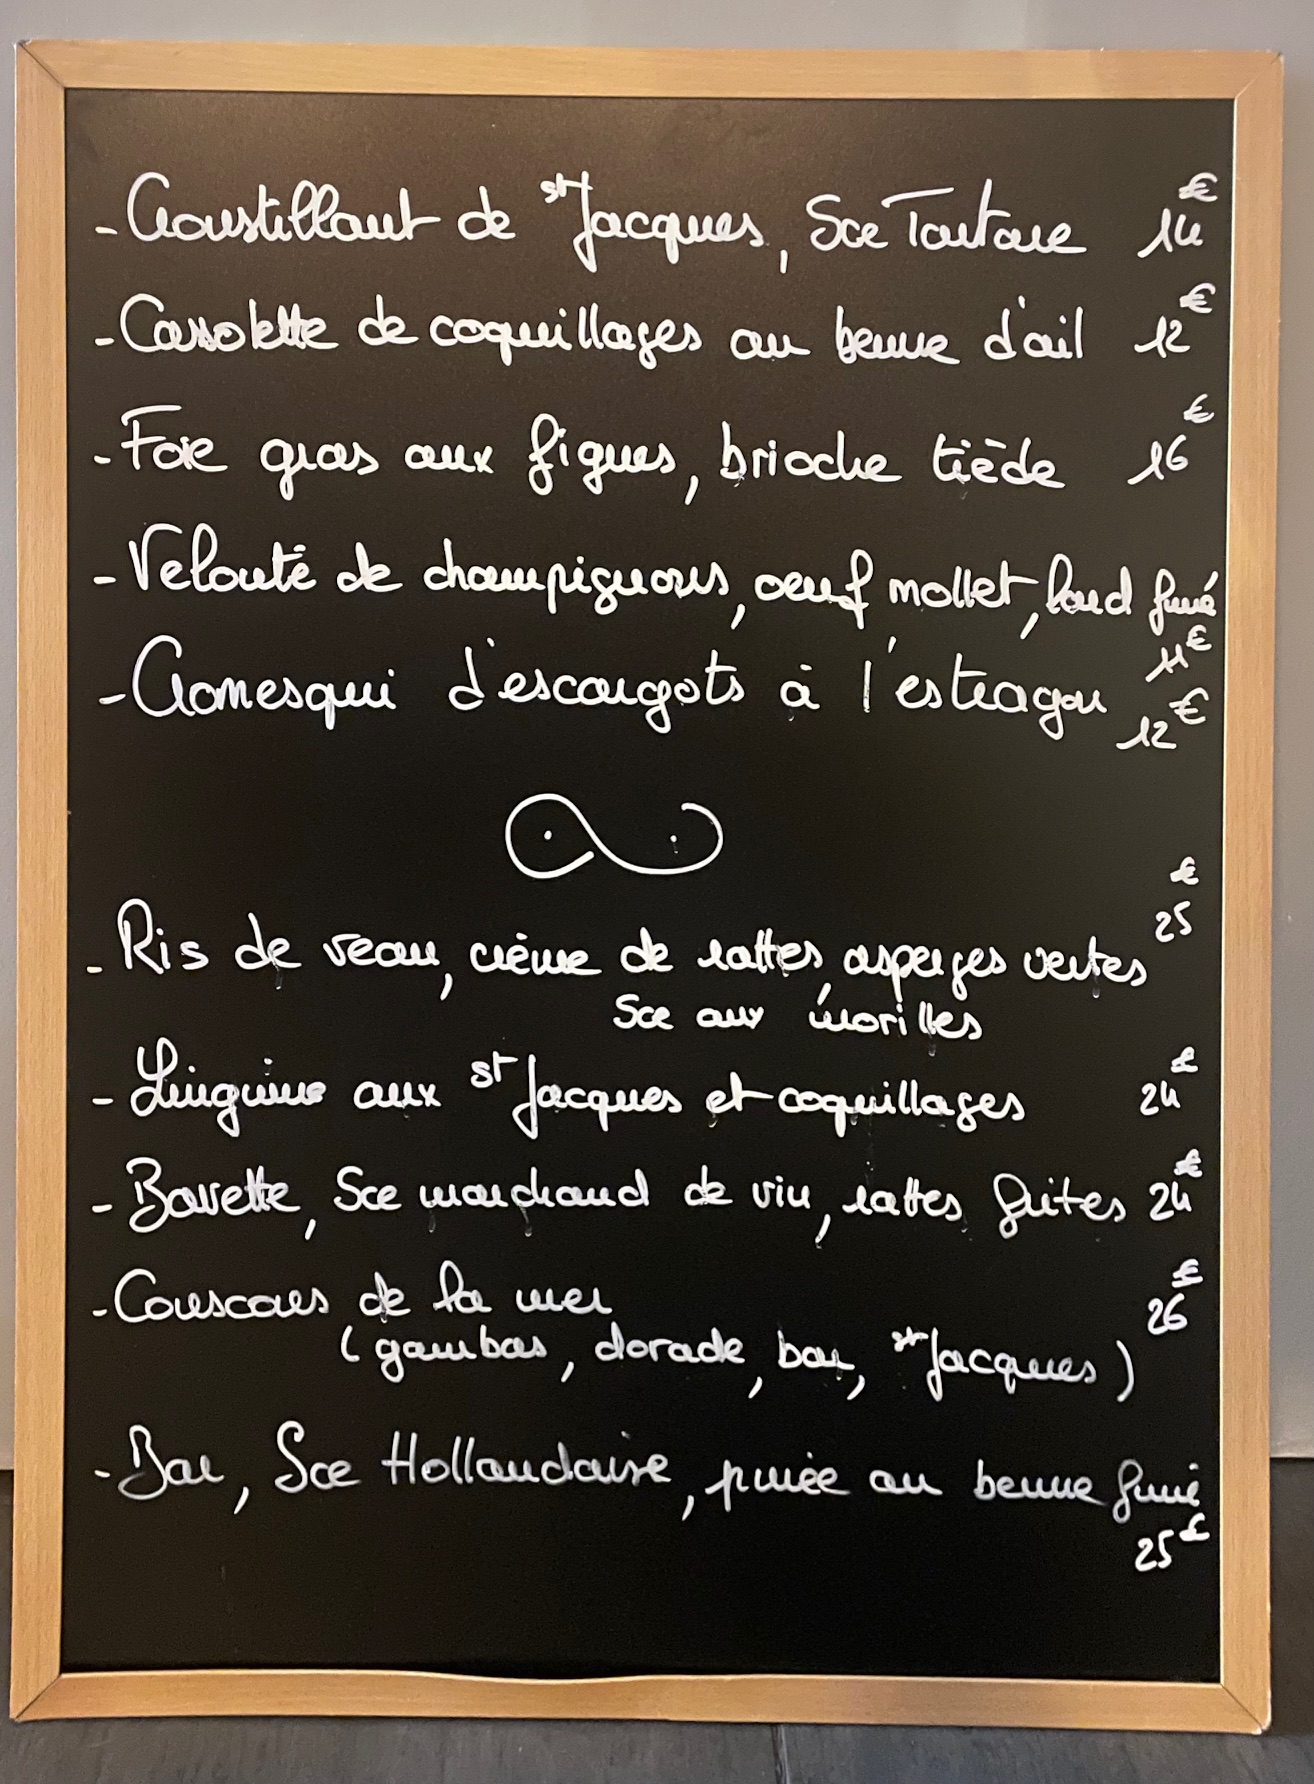 - Croustillant de St Jacques, Sce Tartare 14€
- Cassolette de coquillages au beurre d'ail 12€
- Foie gras aux figues, brioche tiède 16€
- Velouté de champignons, oeuf mollet, lard fumé
11€
- Cromesqui d'escargots à l'estragon 12€
- Ris de veau, crème de rattes, asperges vertes 25€
Sce aux morilles
- Linguine aux St Jacques et coquillages 24€
- Bavette, Sce marchand de vin, rattes frites 24€
- Couscous de la mer 26€
(gambas, dorade, bar, St Jacques)
- Bar, Sce Hollandaise, purée au beurre fumé
25€